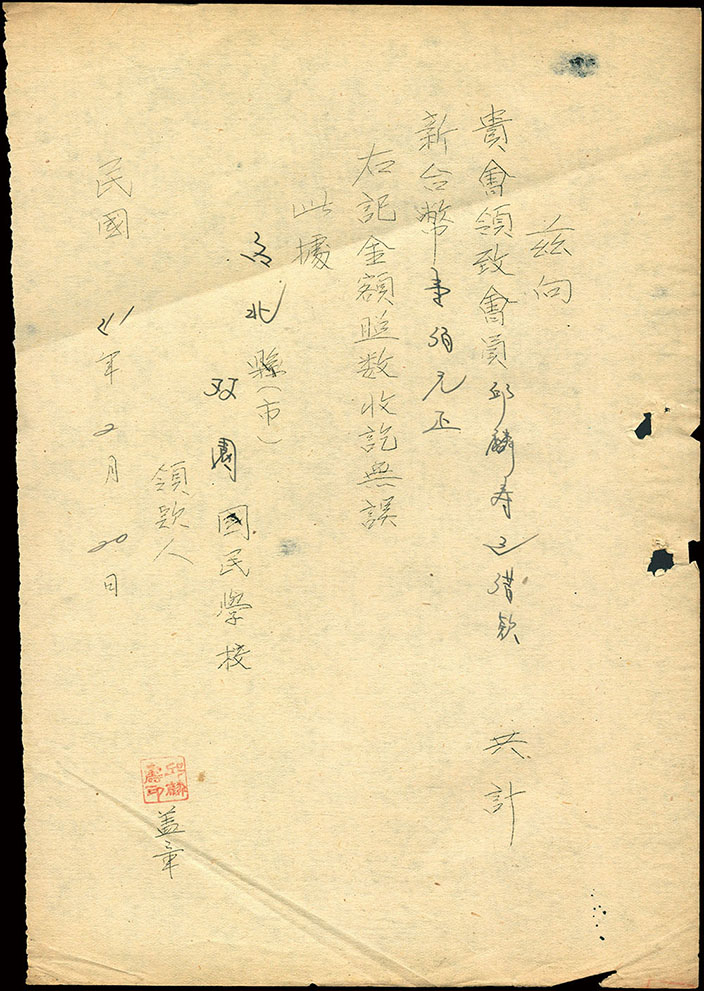 茲向
貴會領致會員邱麟寿之借欵 共計
新台幣 佰元正
右記金額照数收訖無誤
此據
台北縣(市)
双園國民學校
領欵人
邱麟壽印 盖章
民國 年2月20日